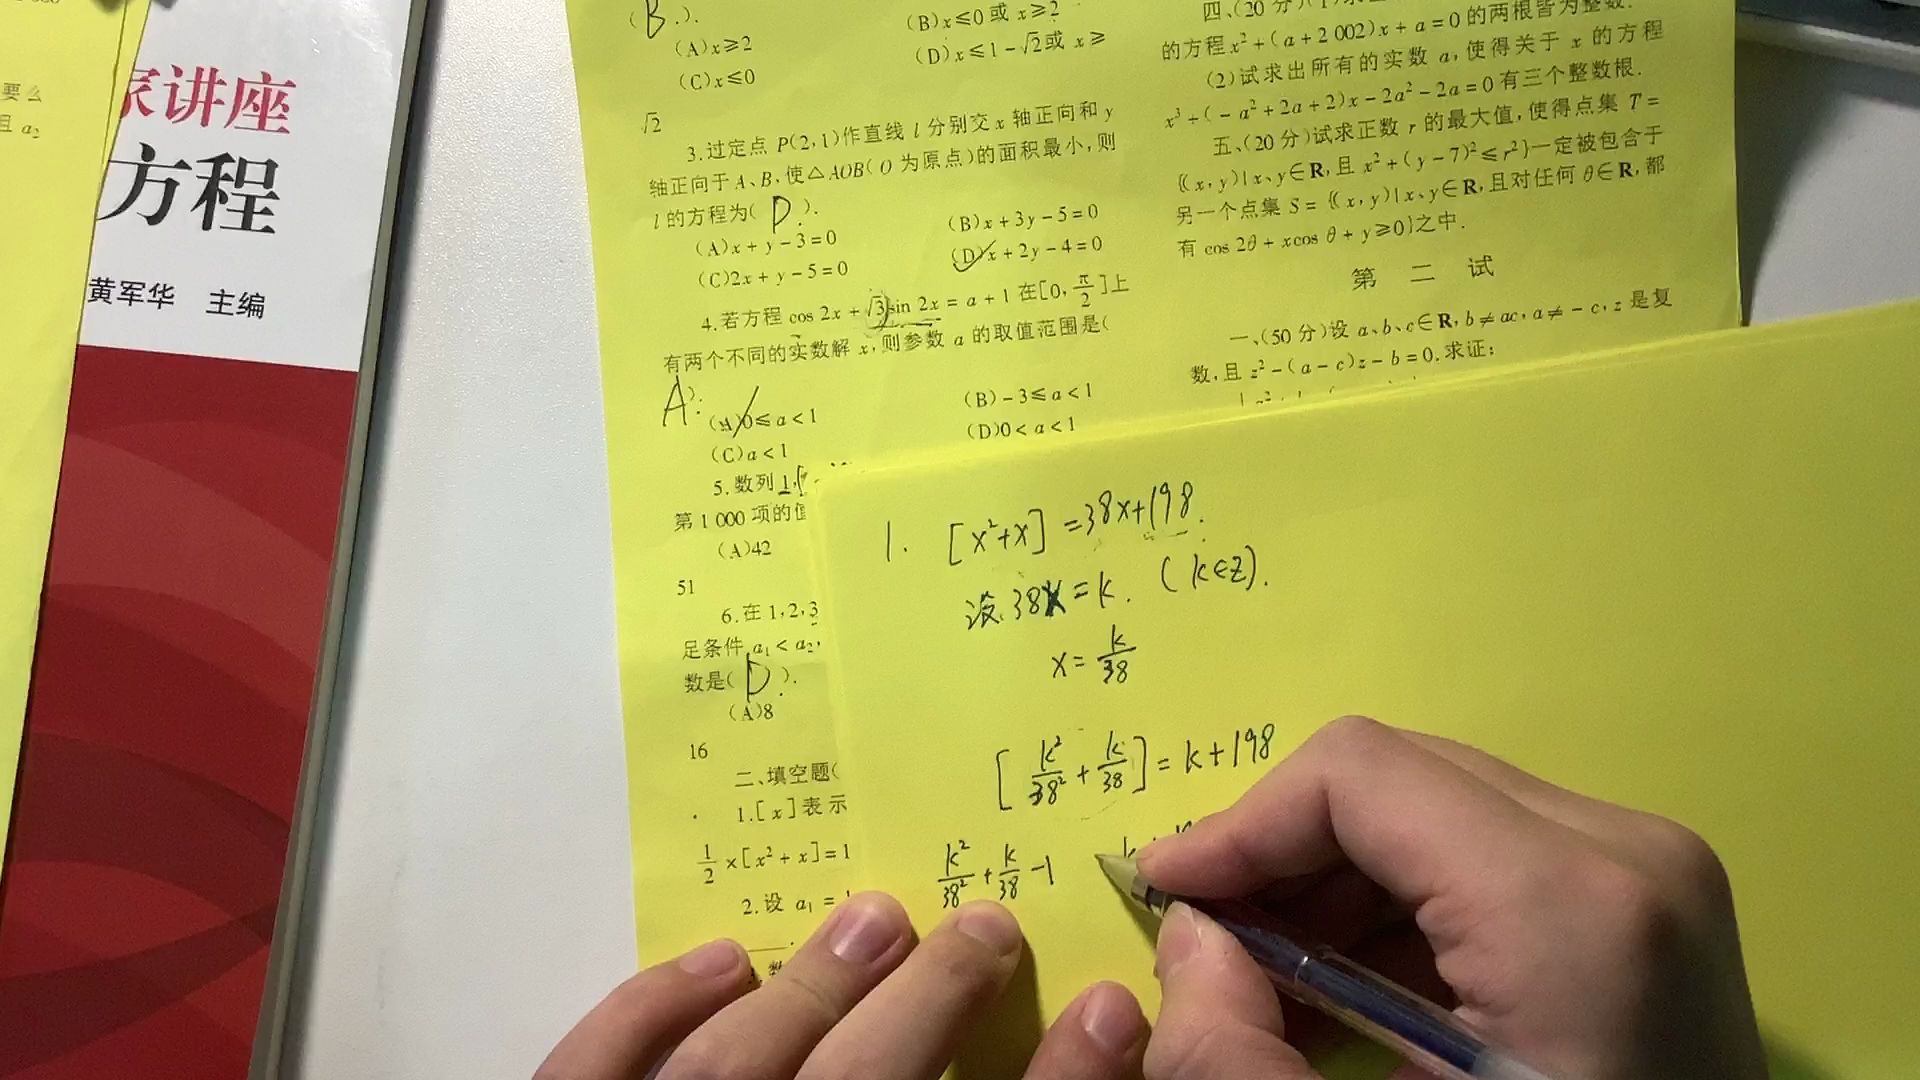 要么
且 a₂
家讲座
方程
黄军华 主编
(B.).
(A)x≥2
(B)x≤0或 x≥2
(C)x≤0
(D)x≤1-√2或 x≥
√2
3.过定点 P(2,1)作直线 l 分别交 x 轴正向和 y
轴正向于 A、B,使△AOB(O 为原点)的面积最小,则
l 的方程为( D ).
(A)x+y-3=0
(B)x+3y-5=0
(C)2x+y-5=0
(D)x+2y-4=0
4.若方程 cos 2x+√3sin 2x=a+1 在[0,π/2]上
有两个不同的实数解 x,则参数 a 的取值范围是(
A ).
(A)0≤a<1
(B)-3≤a<1
(C)a<1
(D)0<a<1
5.数列1,
第 1 000 项的值
(A)42
51
6.在 1,2,3
足条件 a₁<a₂,
数是( D ).
(A)8
16
二、填空题(
1.[x]表示
1/2×[x²+x]=1
2.设 a₁=
数
四、(20 分)(1)
的方程x²+(a+2 002)x+a=0的两根皆为整数.
(2)试求出所有的实数 a,使得关于 x 的方程
x³+(-a²+2a+2)x-2a²-2a=0有三个整数根.
五、(20 分)试求正数 r 的最大值,使得点集 T=
{(x,y)|x、y∈R,且 x²+(y-7)²≤r²}一定被包含于
另一个点集 S={(x,y)|x、y∈R,且对任何 θ∈R,都
有 cos 2θ+xcos θ+y≥0}之中.
第 二 试
一、(50 分)设 a、b、c∈R,b≠ac,a≠-c,z 是复
数,且 z²-(a-c)z-b=0.求证:
1. [x²+x]=38x+198.
设 38x=k. (k∈Z).
x=k/38
[k²/38²+k/38]=k+198
k²/38²+k/38-1